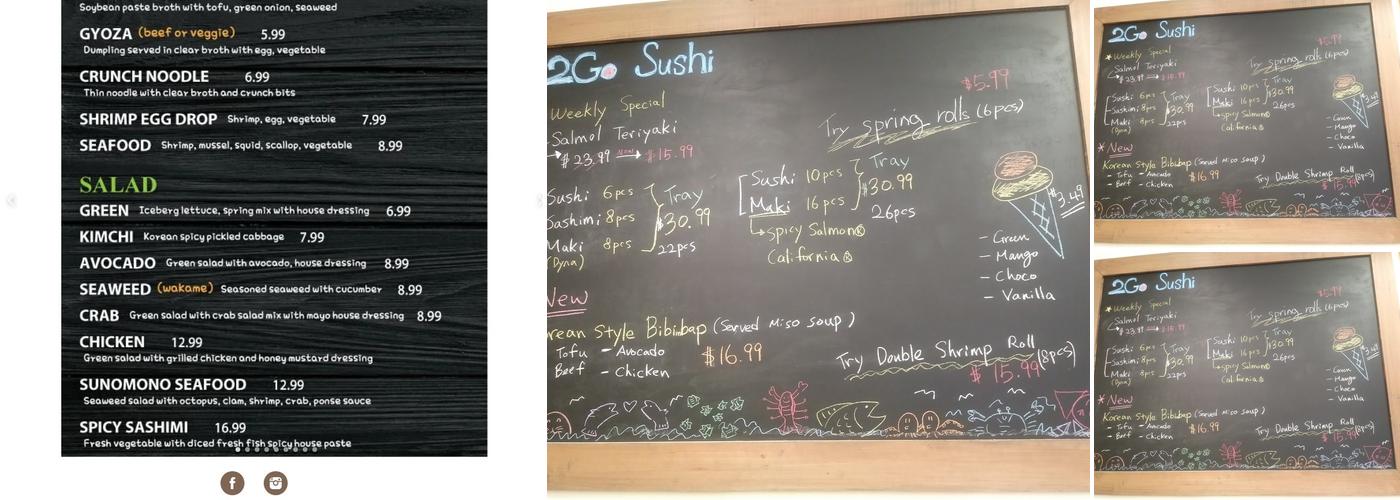 Soybean paste broth with tofu, green onion, seaweed
GYOZA (beef or veggie) 5.99
Dumpling served in clear broth with egg, vegetable
CRUNCH NOODLE 6.99
Thin noodle with clear broth and crunch bits
SHRIMP EGG DROP Shrimp, egg, vegetable 7.99
SEAFOOD Shrimp, mussel, squid, scallop, vegetable 8.99
SALAD
GREEN Iceberg lettuce, spring mix with house dressing 6.99
KIMCHI Korean spicy pickled cabbage 7.99
AVOCADO Green salad with avocado, house dressing 8.99
SEAWEED (wakame) Seasoned seaweed with cucumber 8.99
CRAB Green salad with crab salad mix with mayo house dressing 8.99
CHICKEN 12.99
Green salad with grilled chicken and honey mustard dressing
SUNOMONO SEAFOOD 12.99
Seaweed salad with octopus, clam, shrimp, crab, ponse sauce
SPICY SASHIMI 16.99
Fresh vegetable with diced fresh fish spicy house paste
2Go Sushi
Weekly Special
Salmol Teriyaki
$23.99 NOW $15.99
Sushi 6pcs
Sashimi 8pcs
Maki 8pcs
(Dyna)
Tray
$30.99
22pcs
$5.99
Try spring rolls (6pcs)
Sushi 10pcs
Maki 16pcs
spicy Salmon
California
Tray
$30.99
26pcs
$3.49
- Green
- Mango
- Choco
- Vanilla
New
rean Style Bibimbap (Served Miso Soup)
Tofu - Avocado
Beef - Chicken
$16.99
Try Double Shrimp Roll
$15.99 (8pcs)
2Go Sushi
* Weekly Special
Salmol Teriyaki
$23.99 $15.99
Sushi 6pcs
Sashimi 8pcs
Maki 8pcs
(Dyna)
Tray
$30.99
22pcs
$5.99
Try spring rolls (6pcs)
Sushi 10pcs
Maki 16pcs
spicy Salmon
California
Tray
$30.99
26pcs
$3.49
- Green
- Mango
- Choco
- Vanilla
* New
Korean Style Bibimbap (Served Miso Soup)
- Tofu - Avocado
- Beef - Chicken
$16.99
Try Double Shrimp Roll
$15.99 (8pcs)
2Go Sushi
* Weekly Special
Salmol Teriyaki
$23.99 $15.99
Sushi 6pcs
Sashimi 8pcs
Maki 8pcs
(Dyna)
Tray
$30.99
22pcs
$5.99
Try spring rolls (6pcs)
Sushi 10pcs
Maki 16pcs
spicy Salmon
California
Tray
$30.99
26pcs
$3.49
- Green
- Mango
- Choco
- Vanilla
* New
Korean Style Bibimbap (Served Miso Soup)
- Tofu - Avocado
- Beef - Chicken
$16.99
Try Double Shrimp Roll
$15.99 (8pcs)